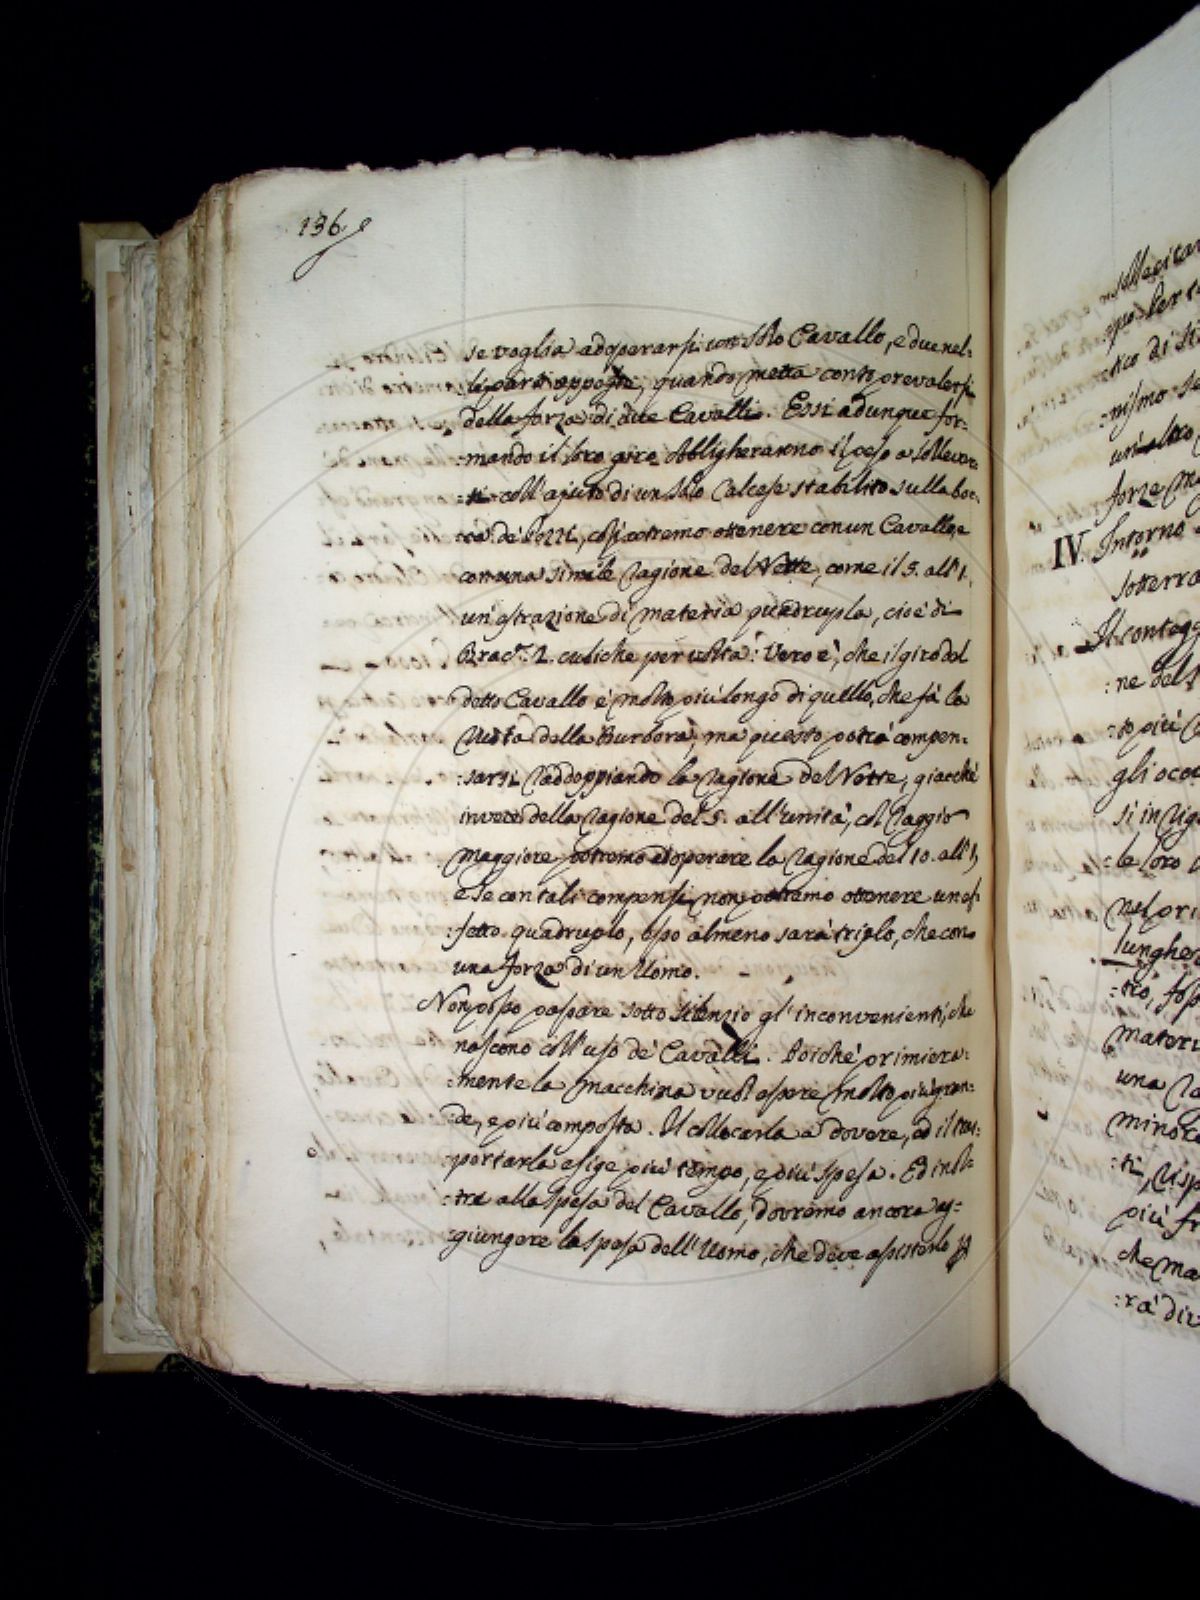 136.
se voglia adoperarsi un solo Cavallo, e due nel-
le parti opposte, quando metta conto prevalersi
della forza di due Cavalli. Essi adunque for-
:mando il loro giro obbligheranno il peso a sollevar
:si coll'ajuto di un solo Calcese stabilito sulla boc-
:ca de' Pozzi, così potremo ottenere con un Cavallo, e
con una simile ragione del Vette, come il 5. all' 1.
un'estrazione di materia quadrupla, cioè di
Bracc. 2. cubiche per volta: Vero è, che il giro del
detto Cavallo è molto più longo di quello, che fà la
Ruota della Burbora, ma questo potrà compen-
:sarsi raddoppiando la ragione del Vette, giacchè
invece della ragione del 5. all'unità, col raggio
maggiore potremo adoperare la ragione del 10. all' 1,
e se con tali compensi non potremo ottenere un ef-
:fetto quadruplo, esso almeno sarà triplo, che con
una forza di un Uomo.
Non posso passare sotto silenzio gl'inconvenienti, che
nascono coll'uso de' Cavalli. Poichè primiera-
:mente la macchina vuol essere molto più gran-
:de, e più composta. Il collocarla a dovere, ed il tras-
:portarla esige più tempo, e più spesa. Ed inol-
:tre alla spesa del Cavallo, dovremo ancora ag-
:giungere la spesa dell'Uomo, che deve assisterlo
sollecitar
:co di
:nismo
un'altro
forze
IV. Intorno
sotterra
Il conteg
:ne del
:to più
gli
si in
:le loro
nel pri
lunghe
materi
una
minor
più fr
che ma
:rà div